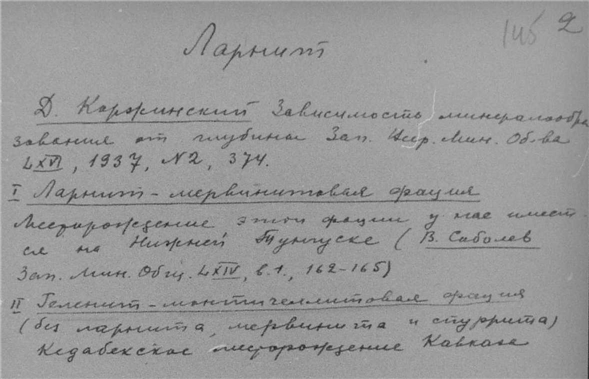 145 2
Ларнит
Д. Коржинский Зависимость минералообра
зования от глубины Зап. Мин. Об-ва
LXVI, 1937, N2, 374.
I Ларнит-мервинитовая фация
Месторождение этой фации у нас имеет-
ся на Нижней Тунгуске (В. Соболев
Зап. Мин. Общ. LXIV, в.1, 162-165)
II Геленит-монтичеллитовая фация
(без ларнита, мервинита и спуррита)
Кедабекское месторождение Кавказа